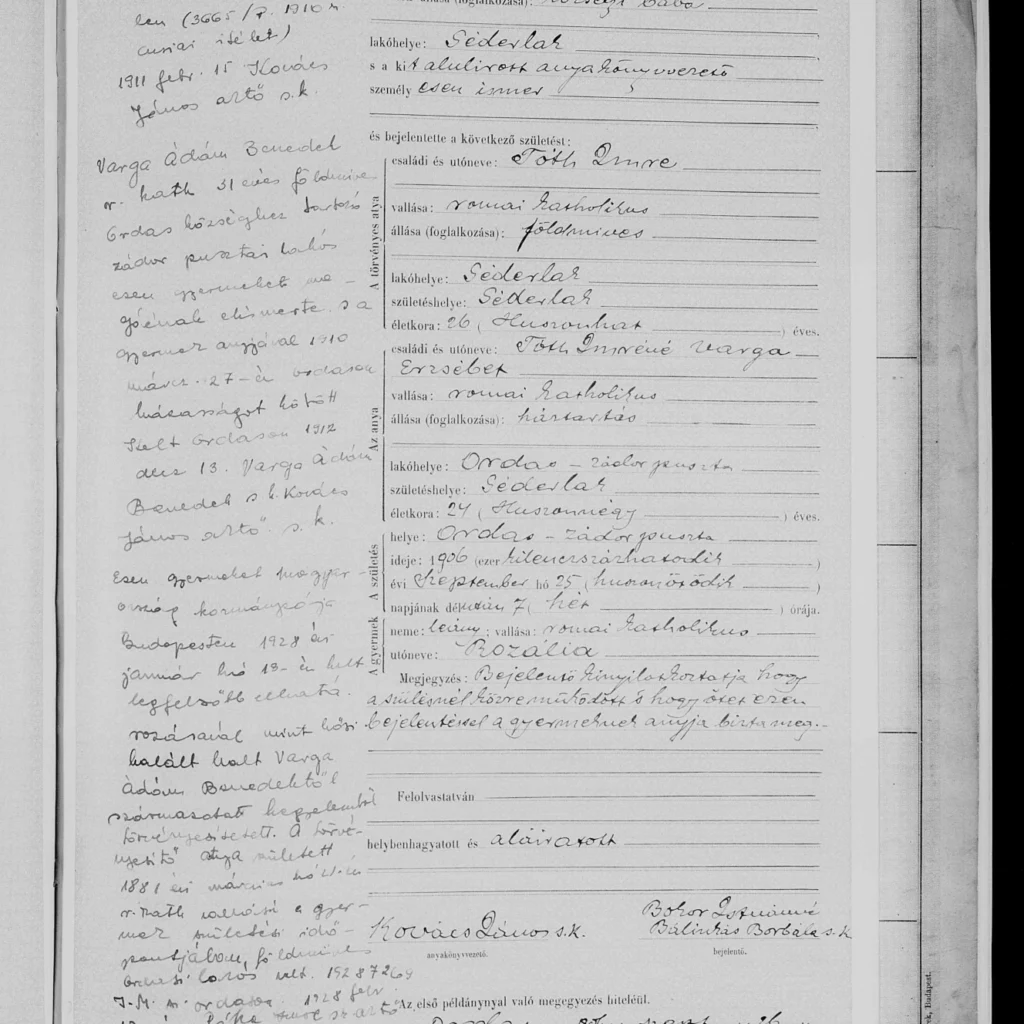 len (3665/P. 1910 n.
curiai itélet)
1911 febr. 15 Kovács
János akvő s.k.
Varga Ádám Benedek
r. kath 31 éves földmives
Ordas községhez tartozó
zádor pusztai lakós
ezen gyermeket ma-
gáénak elismerte s a
gyermek anyjával 1910
márcz. 27-én ordason
házasságot kötött
Kelt Ordason 1912
decz 13. Varga Ádám
Benedek s k. Kovács
János s. k.
Ezen gyermeket Magyar-
ország kormányzója
Budapesten 1928 évi
január hó 13-án kelt
legfelsőbb elhatá-
rozásával mint hősi
halált halt Varga
Ádám Benedektől
származottat kegyelemből
törvényesitetett. A törvé-
nyesitő atya született
1881 évi március hó 21-én
r. kath vallású a gyer-
mek születési idő-
pontjában, földmives
ordasi lakós volt. 1928
I. M. Ordason 1928 febr.
lakóhelye: Séderlak
s a kit alulirott anyakönyvvezető
személyesen ismer
és bejelentette a következő születést:
A törvényes atya
családi és utóneve: Tóth Imre
vallása: romai katholikus
állása (foglalkozása): földmives
lakóhelye: Séderlak
születéshelye: Séderlak
életkora: 26 (Huszonhat) éves.
Az anya
családi és utóneve: Tóth Imréné Varga
Erzsébet
vallása: romai katholikus
állása (foglalkozása): háztartás
lakóhelye: Ordas - zádor puszta
születéshelye: Séderlak
életkora: 24 (Huszonnégy) éves.
A születés
helye: Ordas - zádor puszta
ideje: 1906 (ezer kilenczszázhatodik)
évi Szeptember hó 25 (huszonötödik)
napjának délután 7 (hét) órája.
A gyermek
neme: leány; vallása: romai katholikus
utóneve: Rozália
Megjegyzés: Bejelentő kinyilatkoztatja hogy
a szülésnél közreműködött s hogy őtet ezen
bejelentéssel a gyermeknek anyja bizta meg.-
Felolvastatván
helybenhagyatott és aláiratott
Kovács János s.k.
anyakönyvvezető.
Bokor Istvánné
Bálinkás Borbála s.k.
bejelentő.
Az első példánynyal való megegyezés hiteléül.
Budapest.